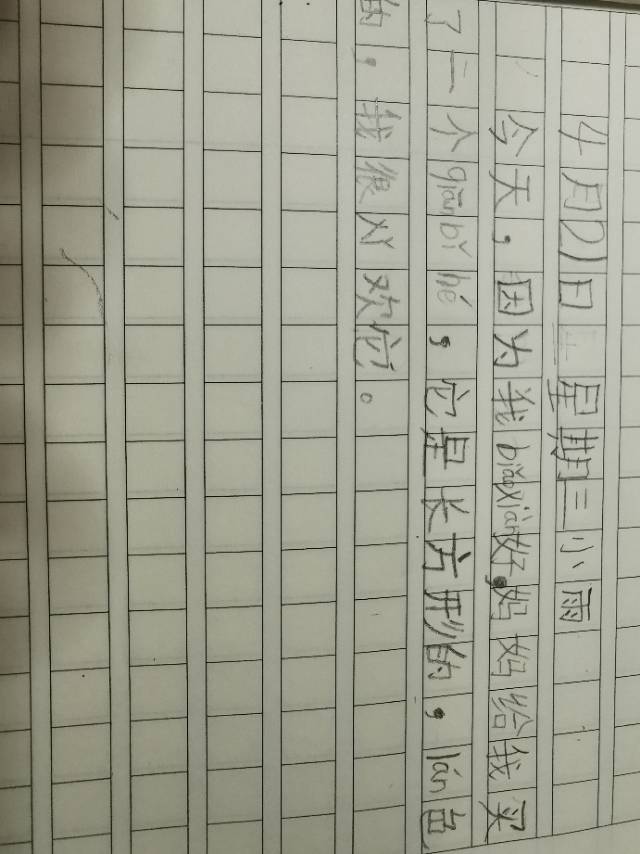 4月21日 星期三 小雨
今天，因为我biǎoxiàn好，妈妈给我买
了一个qiānbǐ hé，它是长方形的，lán色
的，我很对欢它。